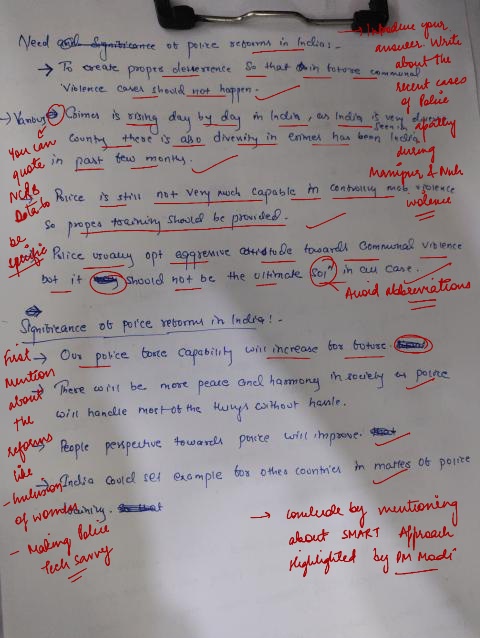 Need and Significance of police reforms in India:-
→ To create proper deterrence so that in future communal
violence cases should not happen.
→ Various Crimes is rising day by day in India, as India is very diverse
country there is also diversity in crimes has been seen in India
in past few months.
Police is still not very much capable in controlling mob violence
so proper training should be provided.
Police usually opt aggressive attitude towards Communal violence
but it should not be the ultimate solⁿ in all case.
Significance of police reforms in India:-
→ Our police force capability will increase for future.
→ There will be more peace and harmony in society as police
will handle most of the things without hassle.
→ People perspective towards police will improve.
→ India could set example for other countries in matter of police
training.
→ Introduce your
answer. Write
about the
recent cases
of Police
apathy
during
Manipur & Nuh
violence
You can
quote
NCRB
Data to
be
specific
Avoid abbreviations
First
mention
about
the
reforms
like
- Inclusion
of women
- Making Police
Tech Savvy
→ Conclude by mentioning
about SMART Approach
Highlighted by PM Modi